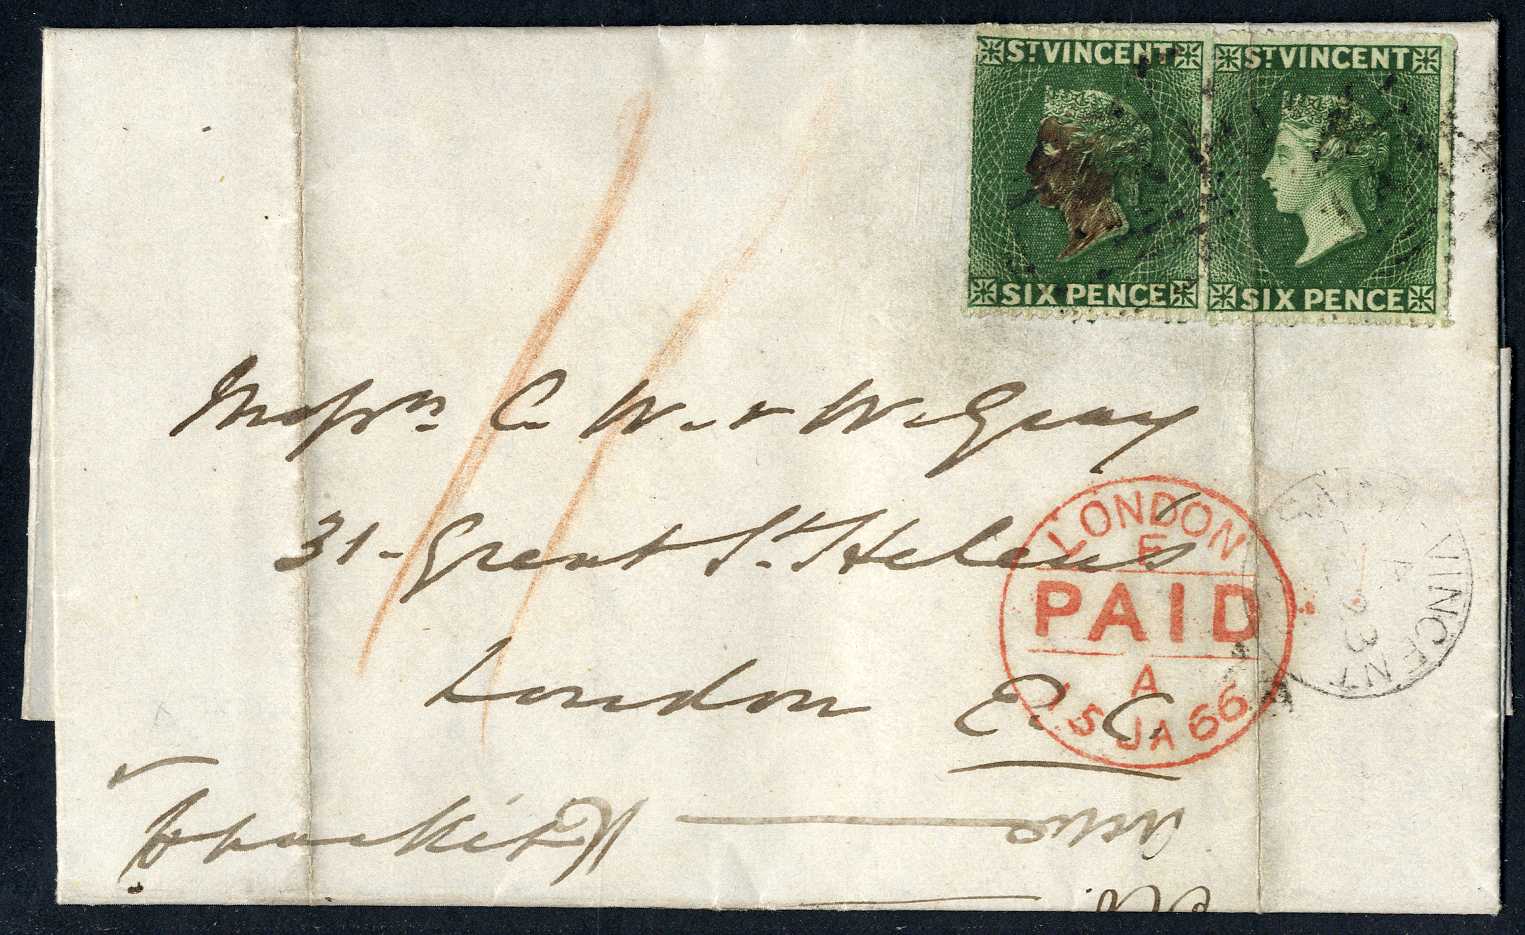 ST VINCENT
SIX PENCE
ST VINCENT
SIX PENCE
Messrs C. W. & W. Gray
31 - Great St. Helens
London E. C.
LONDON
E
PAID
A
15 JA 66
VINCENT
A
23